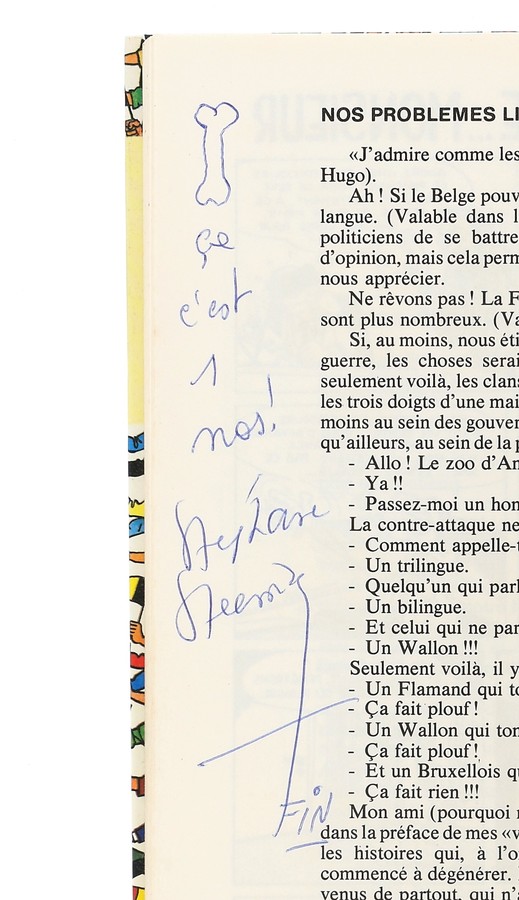 ça
c'est
1
nos!
Stephane
Steeman
FIN
NOS PROBLEMES LI
«J'admire comme les
Hugo).
Ah ! Si le Belge pouv
langue. (Valable dans l
politiciens de se battre
d'opinion, mais cela perm
nous apprécier.
Ne rêvons pas ! La F
sont plus nombreux. (Va
Si, au moins, nous éti
guerre, les choses serai
seulement voilà, les clans
les trois doigts d'une mai
moins au sein des gouver
qu'ailleurs, au sein de la p
- Allo ! Le zoo d'An
- Ya !!
- Passez-moi un hom
La contre-attaque ne
- Comment appelle-t
- Un trilingue.
- Quelqu'un qui parl
- Un bilingue.
- Et celui qui ne par
- Un Wallon !!!
Seulement voilà, il y
- Un Flamand qui to
- Ça fait plouf !
- Un Wallon qui tom
- Ça fait plouf !
- Et un Bruxellois qu
- Ça fait rien !!!
Mon ami (pourquoi
dans la préface de mes «v
les histoires qui, à l'o
commencé à dégénérer.
venus de partout, qui n'a